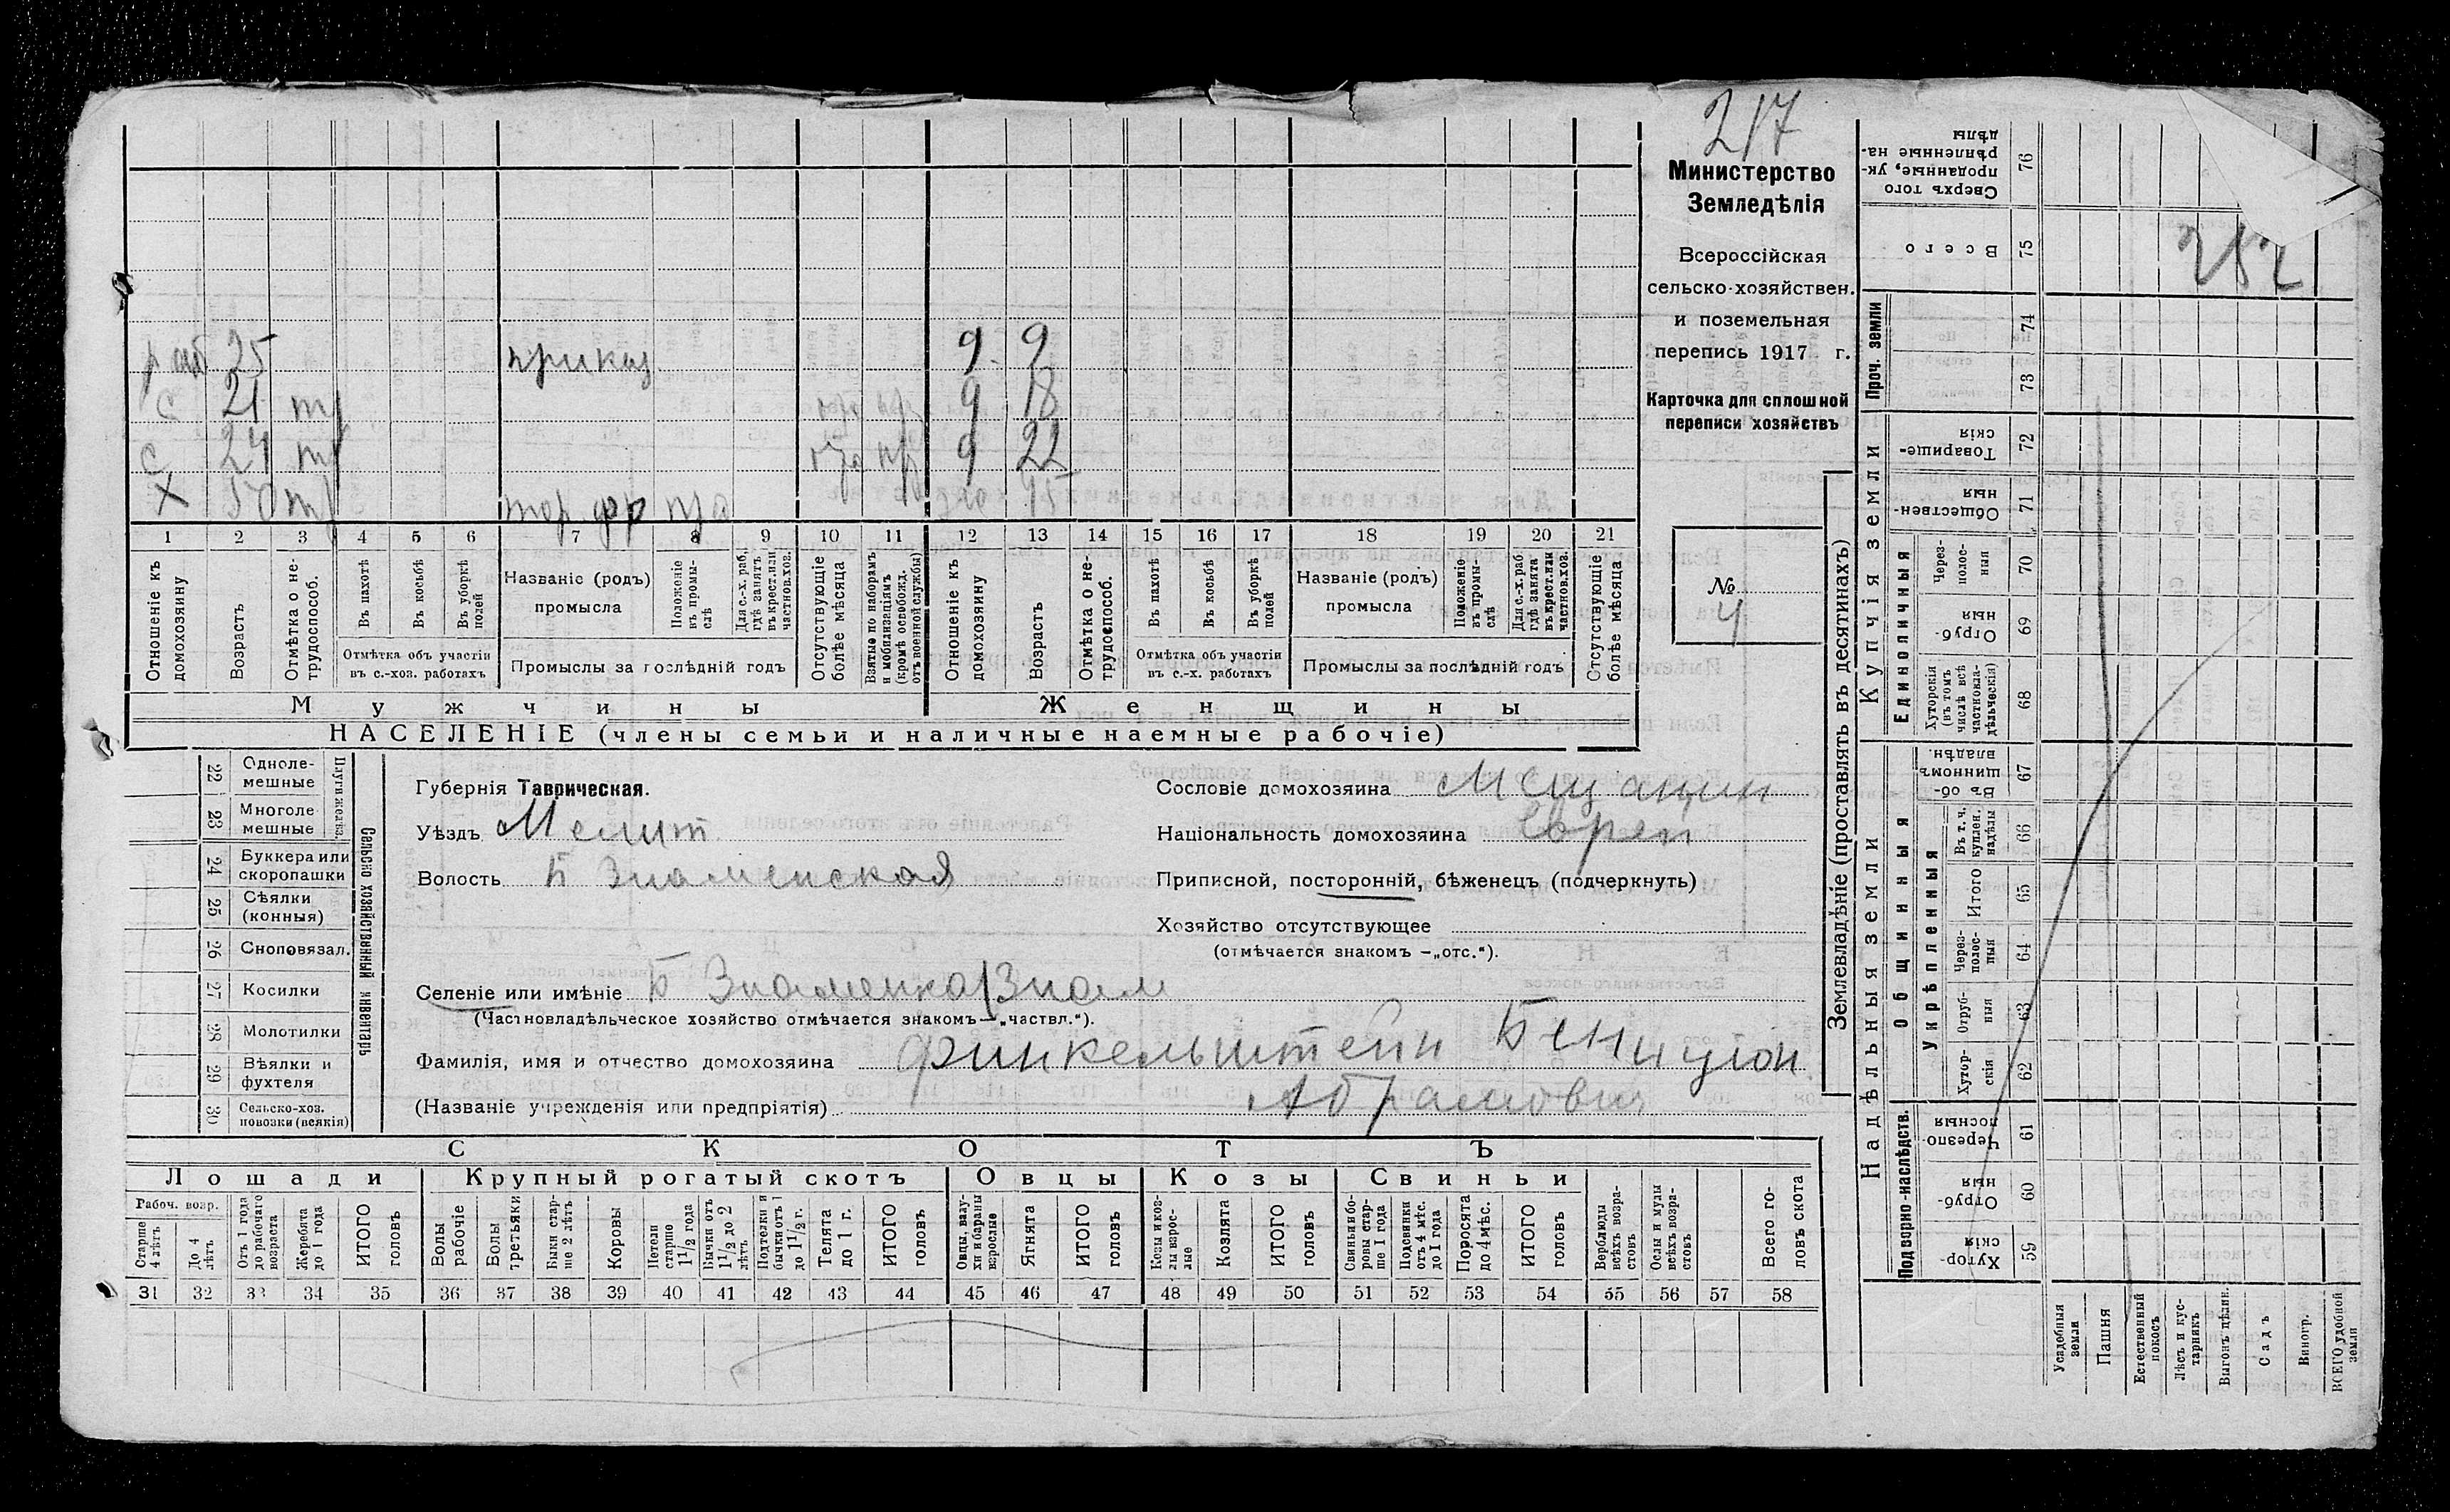 217
Министерство
Земледѣлія
Всероссійская
сельско-хозяйствен.
и поземельная
перепись 1917 г.
Карточка для сплошной
переписи хозяйствъ
№
4
раб 25 приказ 9 9
с 21 9 18
с 24 9 22
х 50
1 2 3 4 5 6 7 8 9 10 11 12 13 14 15 16 17 18 19 20 21
Отношеніе къ домохозяину
Возрастъ
Отмѣтка о нетрудоспособ.
Въ пахотѣ
Въ косьбѣ
Въ уборкѣ полей
Отмѣтка объ участіи
въ с.-хоз. работахъ
Названіе (родъ)
промысла
Положеніе въ промыслѣ
Для с.-х. раб. гдѣ занятъ въ крест. или частнов. хоз.
Промыслы за послѣдній годъ
Отсутствующіе болѣе мѣсяца
Взятые по наборамъ и мобилизаціямъ (кромѣ освобожд. отъ военной службы)
Отношеніе къ домохозяину
Возрастъ
Отмѣтка о нетрудоспособ.
Въ пахотѣ
Въ косьбѣ
Въ уборкѣ полей
Отмѣтка объ участіи
въ с.-х. работахъ
Названіе (родъ)
промысла
Положеніе въ промыслѣ
Для с.-х. раб. гдѣ занята въ крест. или частнов. хоз.
Промыслы за послѣдній годъ
Отсутствующіе болѣе мѣсяца
Мужчины
Женщины
НАСЕЛЕНІЕ (члены семьи и наличные наемные рабочіе)
Сельско хозяйственный инвентарь
Плуги желѣз.
22 Однолемешные
23 Многолемешные
24 Буккера или скоропашки
25 Сѣялки (конныя)
26 Сноповязал.
27 Косилки
28 Молотилки
29 Вѣялки и фухтеля
30 Сельско-хоз. повозки (всякія)
Губернія Таврическая.
Уѣздъ Мелит
Волость Б Знаменская
Сословіе домохозяина Мещанин
Національность домохозяина Еврей
Приписной, посторонній, бѣженецъ (подчеркнуть)
Хозяйство отсутствующее
(отмѣчается знакомъ —„отс.“).
Селеніе или имѣніе Б Знаменка/Знам
(Частновладѣльческое хозяйство отмѣчается знакомъ—„частвл.“).
Фамилія, имя и отчество домохозяина Финкельштейн Бенцион
(Названіе учрежденія или предпріятія) Абрамович
СКОТЪ
Лошади
Крупный рогатый скотъ
Овцы
Козы
Свиньи
Рабоч. возр.
Старше 4 лѣтъ
До 4 лѣтъ
Отъ 1 года до рабочаго возраста
Жеребята до 1 года
ИТОГО головъ
Волы рабочіе
Волы третьяки
Быки старше 2 лѣтъ
Коровы
Нетели старше 1½ года
Бычки отъ 1½ до 2 лѣтъ
Подтелки и бычки отъ 1 до 1½ г.
Телята до 1 г.
ИТОГО головъ
Овцы, валухи и бараны взрослые
Ягнята
ИТОГО головъ
Козы и козлы взрослые
Козлята
ИТОГО головъ
Свиньи и боровы старше 1 года
Подсвинки отъ 4 мѣс. до 1 года
Поросята до 4 мѣс.
ИТОГО головъ
Верблюды всѣхъ возрастовъ
Ослы и мулы всѣхъ возрастовъ
Всего головъ скота
31 32 33 34 35 36 37 38 39 40 41 42 43 44 45 46 47 48 49 50 51 52 53 54 55 56 57 58
Землевладѣніе (проставлять въ десятинахъ)
Сверхъ того проданные, укрѣпленные надѣлы 76
Всего 75
252
Проч. земли
74
73
Купчія земли
Товарищескія 72
Общественныя 71
Единоличныя
Черезполосныя 70
Отрубныя 69
Хуторскія (въ томъ числѣ всѣ частновладѣльческія) 68
Надѣльныя земли
Общинныя
Въ общинномъ владѣн. 67
Укрѣпленныя
Въ т. ч. куплен. надѣлы 66
Итого 65
Черезполосныя 64
Отрубныя 63
Хуторскія 62
Подворно-наслѣдств.
Черезполосныя 61
Отрубныя 60
Хуторскія 59
Усадебныя земли
Пашня
Естественный покосъ
Лѣсъ и кустарникъ
Выгонъ цѣлин.
Садъ
Виногр.
ВСЕГО удобной земли